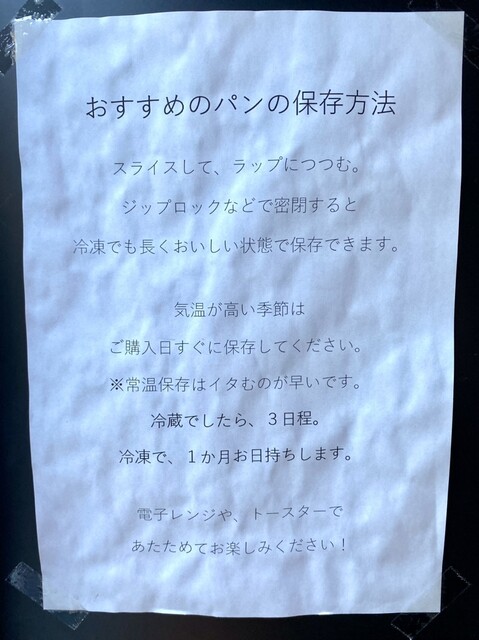 おすすめのパンの保存方法
スライスして、ラップにつつむ。
ジップロックなどで密閉すると
冷凍でも長くおいしい状態で保存できます。
気温が高い季節は
ご購入日すぐに保存してください。
※常温保存はイタむのが早いです。
冷蔵でしたら、３日程。
冷凍で、１か月お日持ちします。
電子レンジや、トースターで
あたためてお楽しみください！